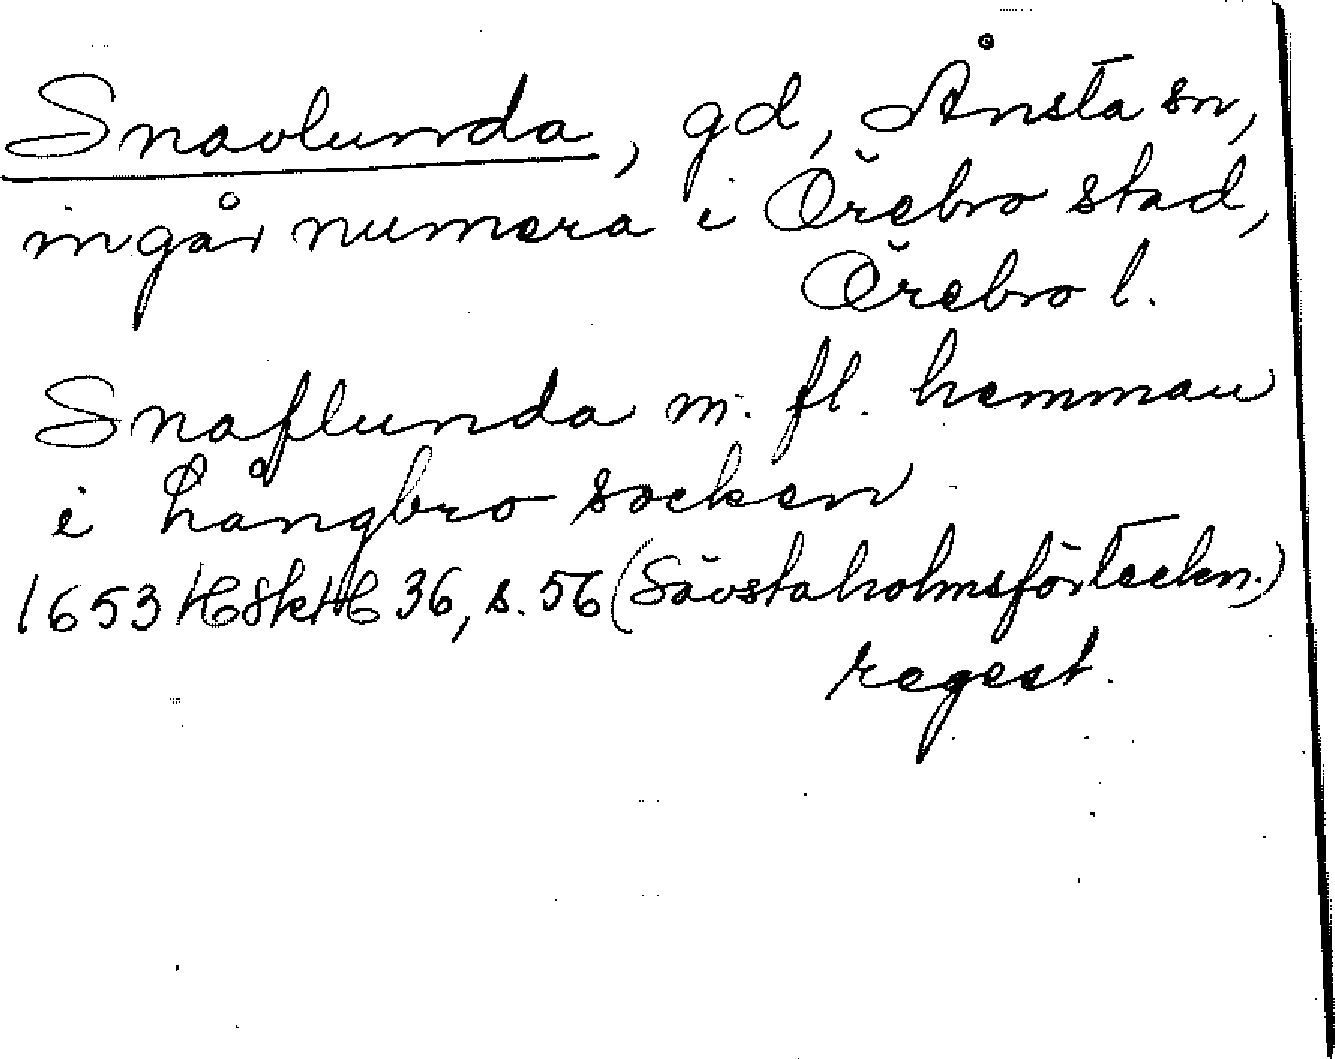 Snavlunda, gd, Ånsta sn,
ingår numera i Örebro stad,
Örebro l.
Snaflunda m. fl. hemman
i Långbro socken
1653 HSkH 36, s. 56 (Sävstaholmsförteckn.)
regest.